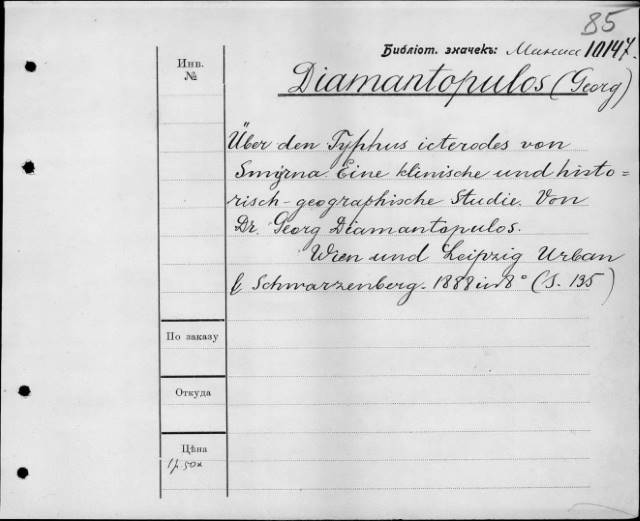 85
Библіот. значекъ: 10147.
Инв.
№
Diamantopulos (Georg)
Über den Typhus icterodes von
Smyrna. Eine klinische und histo=
risch-geographische Studie. Von
Dr. Georg Diamantopulos.
Wien und Leipzig Urban
& Schwarzenberg. 1888 in 8° (S. 135)
По заказу
Откуда
Цѣна